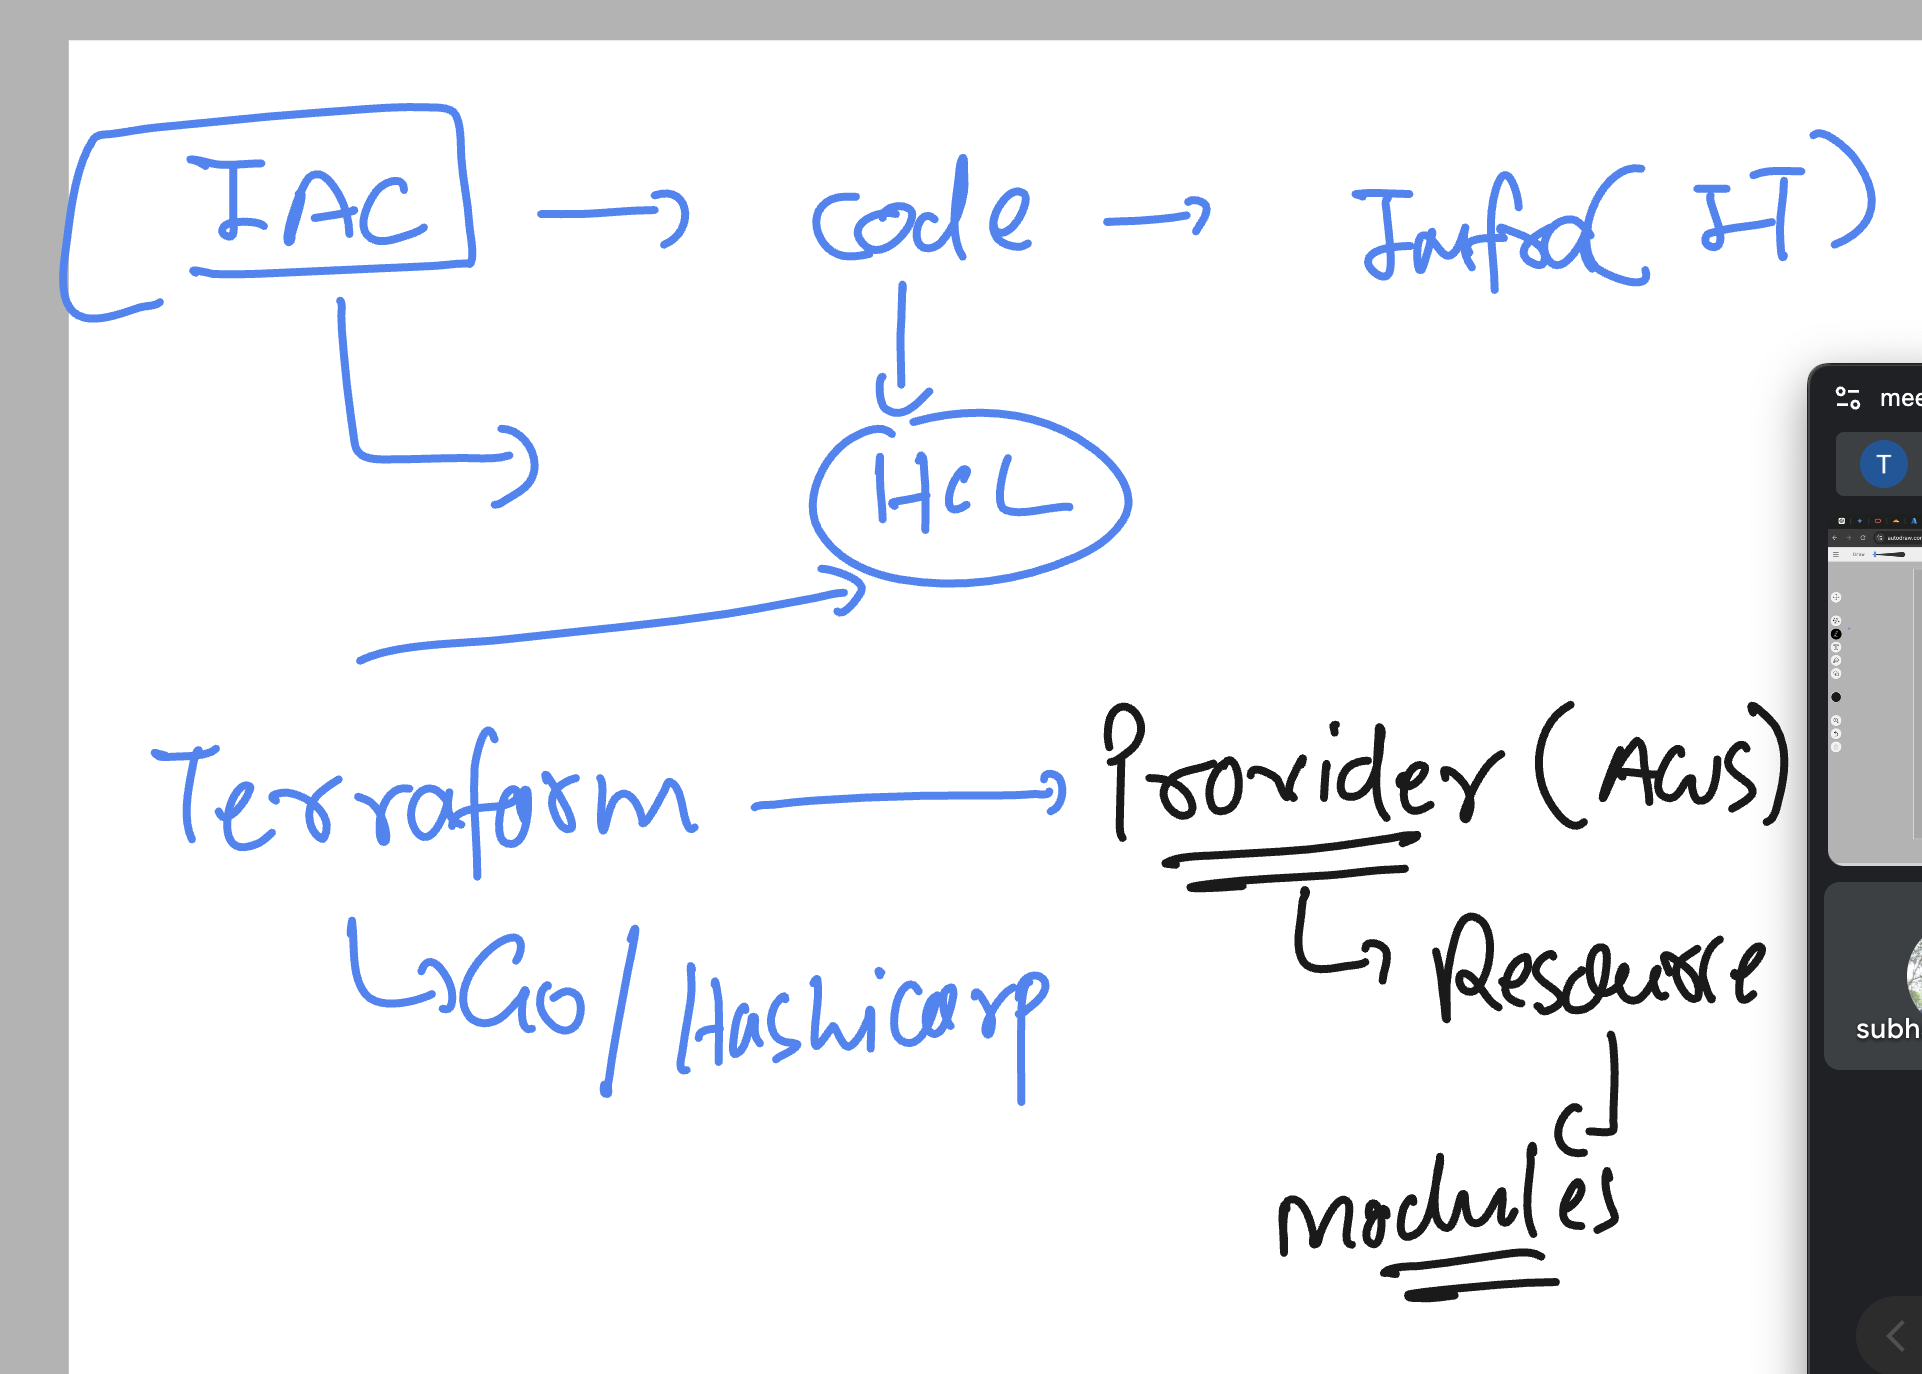 IAC → code → Infra (IT)
HCL
Terraform → Provider (AWS)
Go / Hashicorp
Resource
modules
mee
T
autodraw.co
Draw
subh